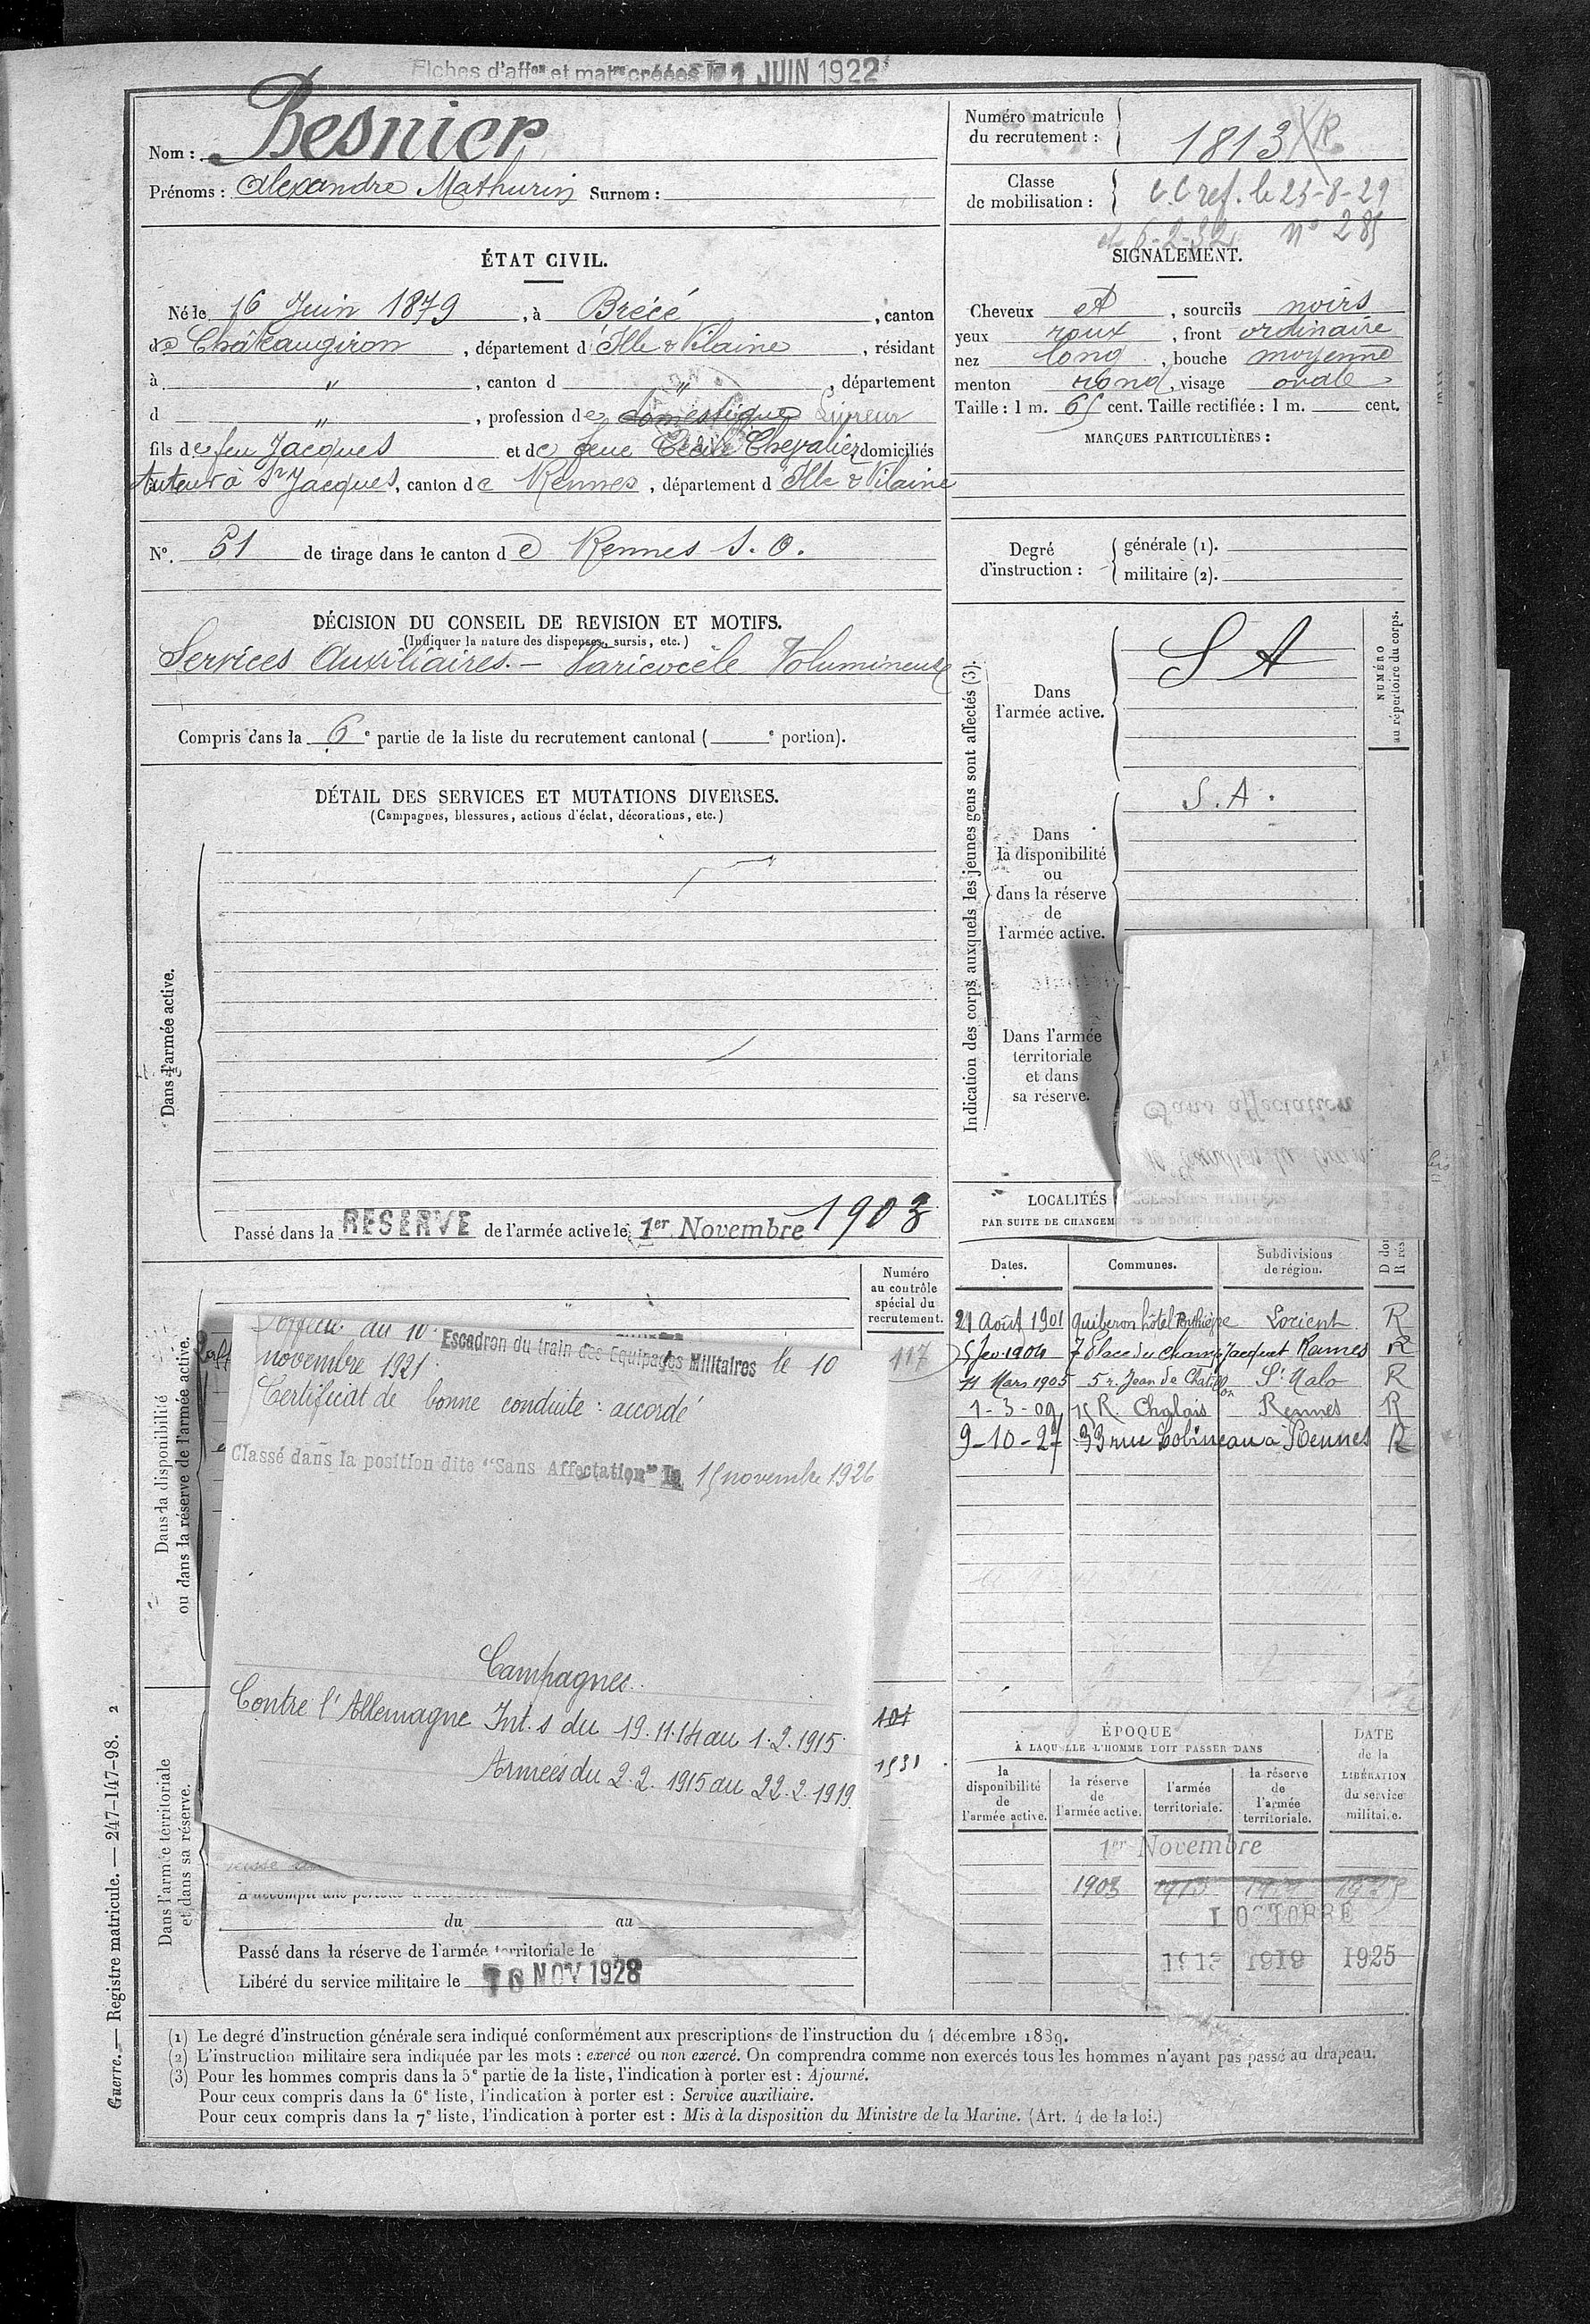 Fiches d'affon et matre créées le 1 JUIN 1922
Nom : Besnier
Prénoms : Alexandre Mathurin Surnom :
Numéro matricule du recrutement : 1813 R
Classe de mobilisation : C.C ref. le 23-8-29
et 6-2-32 n° 285
ÉTAT CIVIL.
Né le 16 Juin 1879, à Brécé, canton
de Châteaugiron, département d'Ille & Vilaine, résidant
à ", canton d ", département
d ", profession de domestique Livreur
fils de feu Jacques et de feue Cécile Chevalier domiciliés
tuteur à St Jacques, canton de Rennes, département d'Ille & Vilaine
N°. 51 de tirage dans le canton de Rennes S.O.
SIGNALEMENT.
Cheveux et, sourcils noirs
yeux roux, front ordinaire
nez long, bouche moyenne
menton rond, visage ovale
Taille : 1 m. 65 cent. Taille rectifiée : 1 m. cent.
MARQUES PARTICULIÈRES :
Degré d'instruction :
générale (1).
militaire (2).
DÉCISION DU CONSEIL DE REVISION ET MOTIFS.
(Indiquer la nature des dispenses, sursis, etc.)
Services Auxiliaires. - Varicocèle Volumineux
Compris dans la 6e partie de la liste du recrutement cantonal ( e portion).
DÉTAIL DES SERVICES ET MUTATIONS DIVERSES.
(Campagnes, blessures, actions d'éclat, décorations, etc.)
Dans l'armée active.
Passé dans la RESERVE de l'armée active le 1er Novembre 1903
Indication des corps auxquels les jeunes gens sont affectés (3).
NUMÉRO au répertoire du corps.
Dans
l'armée active.
S A
Dans
la disponibilité
ou
dans la réserve
de
l'armée active.
S.A.
Dans l'armée
territoriale
et dans
sa réserve.
Sans affectation
LOCALITÉS
PAR SUITE DE CHANGEM
Dates. Communes. Subdivisions de région.
21 Août 1901 Quiberon hôtel Lorient R
5 Fev 1904 7 Place du Champ Jacquet Rennes R
11 Mars 1905 5 r. Jean de Chatillon St Malo R
1-3-09 15 R. Chalais Rennes R
9-10-27 33 rue Lobineau à Rennes R
Dans la disponibilité
ou dans la réserve de l'armée active.
Numéro
au contrôle
spécial du
recrutement.
117
au 10e Escadron du train des Equipages Militaires le 10
novembre 1921
Certificat de bonne conduite : accordé
Classé dans la position dite "Sans Affectation" le 15 novembre 1926
Campagnes.
Contre l'Allemagne Int. s du 19.11.14 au 1.2.1915
Armées du 2.2.1915 au 22.2.1919.
101
1531
Dans l'armée territoriale
et dans sa réserve.
A accompli une période
du au
Passé dans la réserve de l'armée territoriale le
Libéré du service militaire le 10 NOV 1928
ÉPOQUE
À LAQUELLE L'HOMME DOIT PASSER DANS
la
disponibilité
de
l'armée active.
la réserve
de
l'armée active.
l'armée
territoriale.
la réserve
de
l'armée
territoriale.
DATE
de la
LIBÉRATION
du service
militaire.
1er Novembre
1903 1913 1919 1925
1 OCTOBRE
1913 1919 1925
(1) Le degré d'instruction générale sera indiqué conformément aux prescriptions de l'instruction du 4 décembre 1889.
(2) L'instruction militaire sera indiquée par les mots : exercé ou non exercé. On comprendra comme non exercés tous les hommes n'ayant pas passé au drapeau.
(3) Pour les hommes compris dans la 5e partie de la liste, l'indication à porter est : Ajourné.
Pour ceux compris dans la 6e liste, l'indication à porter est : Service auxiliaire.
Pour ceux compris dans la 7e liste, l'indication à porter est : Mis à la disposition du Ministre de la Marine. (Art. 4 de la loi.)
Guerre. — Registre matricule. — 247-147-98. 2